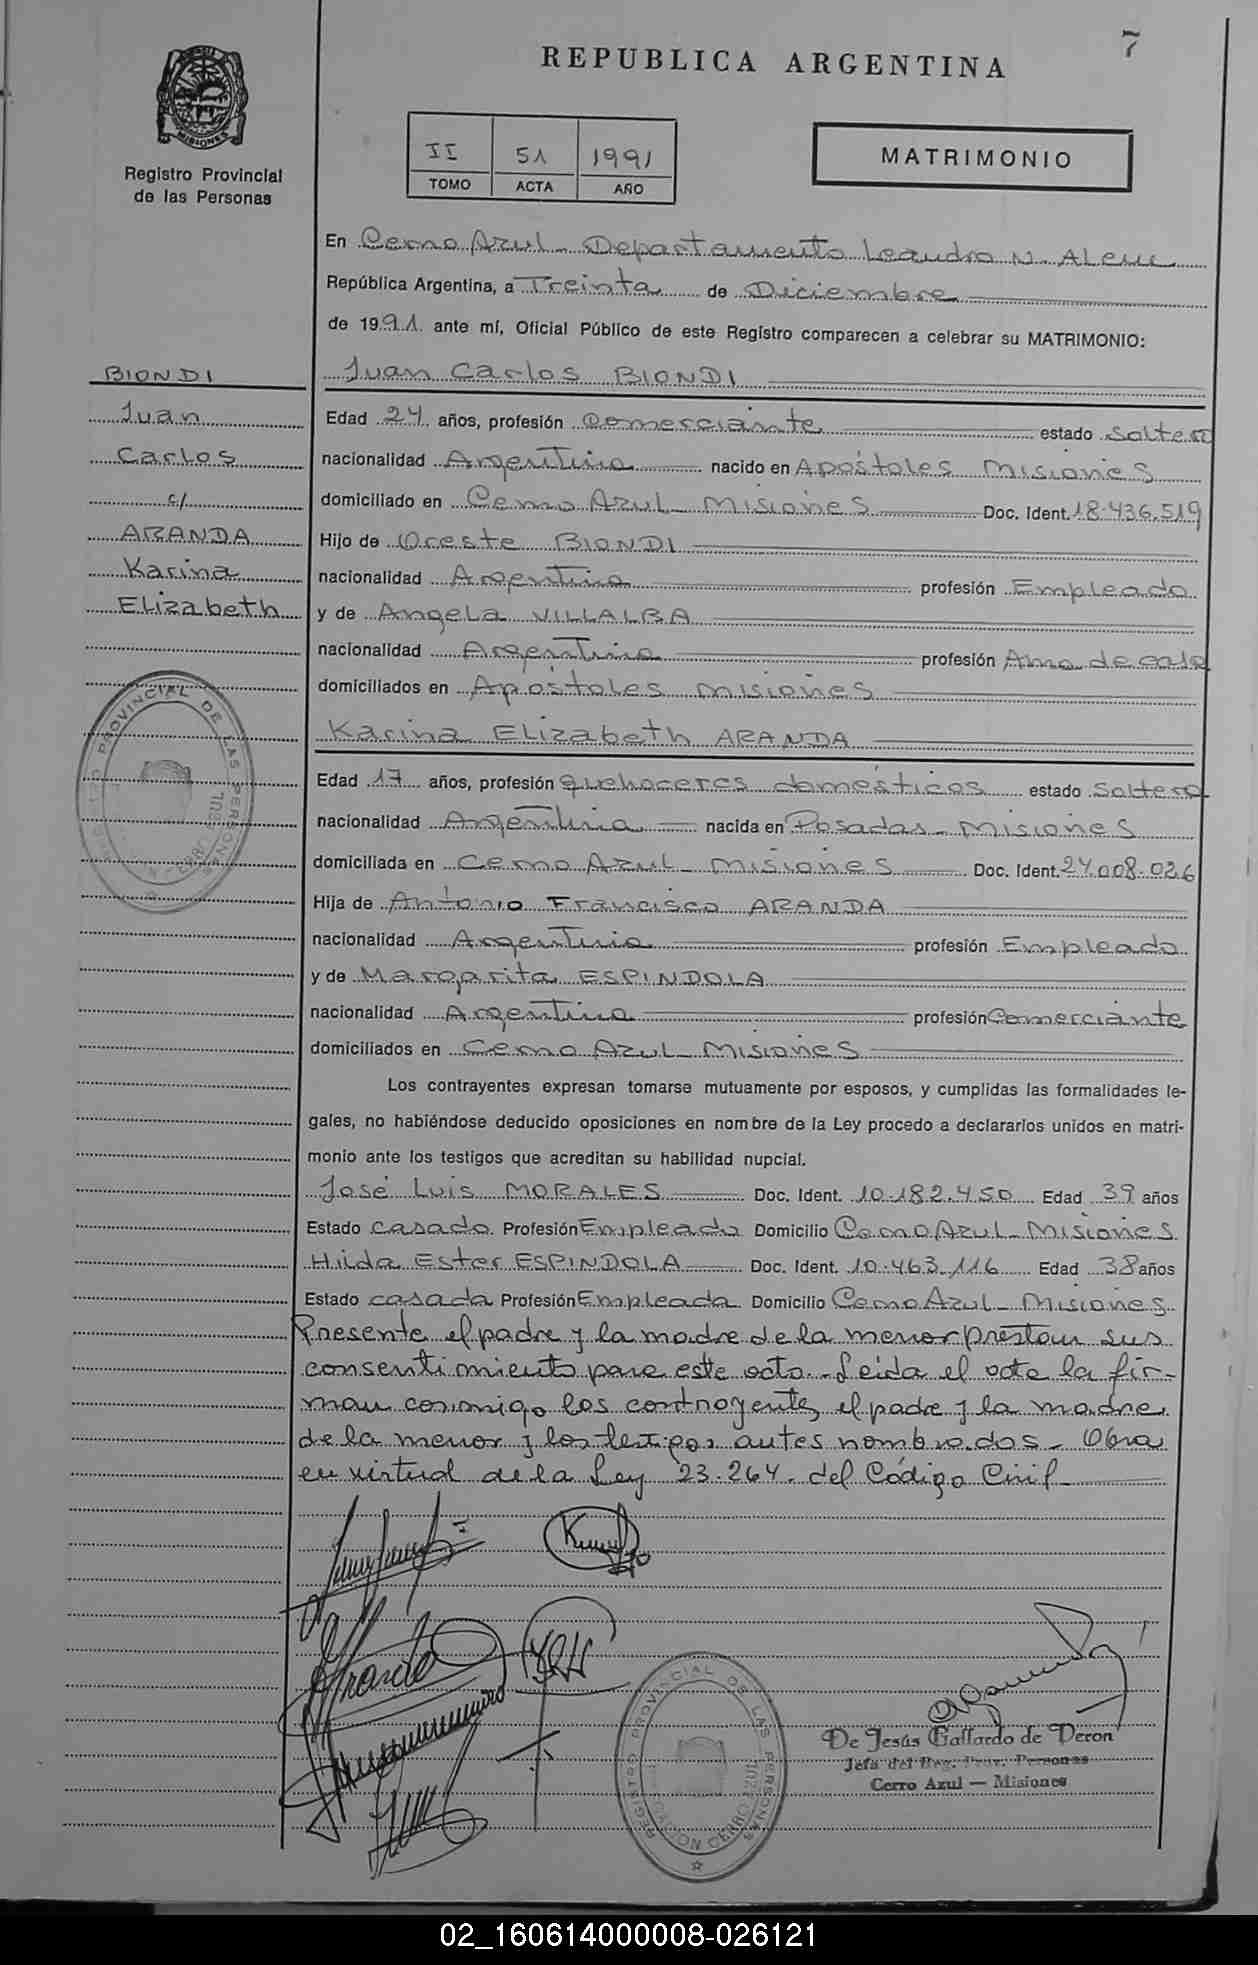 7
REPUBLICA ARGENTINA
MISIONES
Registro Provincial
de las Personas
II 51 1991
TOMO ACTA AÑO
MATRIMONIO
En Cerro Azul - Departamento Leandro N. Alem
República Argentina, a Treinta de Diciembre
de 1991 ante mí, Oficial Público de este Registro comparecen a celebrar su MATRIMONIO:
BIONDI
Juan
Carlos
c/
ARANDA
Karina
Elizabeth
Juan Carlos BIONDI
Edad 24 años, profesión Comerciante estado Soltero
nacionalidad Argentina nacido en Apóstoles Misiones
domiciliado en Cerro Azul - Misiones Doc. Ident. 18.436.519
Hijo de Oreste BIONDI
nacionalidad Argentina profesión Empleado
y de Angela VILLALBA
nacionalidad Argentina profesión Ama de casa
domiciliados en Apóstoles Misiones
Karina Elizabeth ARANDA
Edad 17 años, profesión quehaceres domésticos estado Soltera
nacionalidad Argentina nacida en Posadas - Misiones
domiciliada en Cerro Azul - Misiones Doc. Ident. 24.008.026
Hija de Antonio Francisco ARANDA
nacionalidad Argentina profesión Empleado
y de Margarita ESPINDOLA
nacionalidad Argentina profesión Comerciante
domiciliados en Cerro Azul - Misiones
Los contrayentes expresan tomarse mutuamente por esposos, y cumplidas las formalidades le-
gales, no habiéndose deducido oposiciones en nombre de la Ley procedo a declararlos unidos en matri-
monio ante los testigos que acreditan su habilidad nupcial.
José Luis MORALES Doc. Ident. 10.182.450 Edad 39 años
Estado casado Profesión Empleado Domicilio Cerro Azul - Misiones
Hilda Ester ESPINDOLA Doc. Ident. 10.463.116 Edad 38 años
Estado casada Profesión Empleada Domicilio Cerro Azul - Misiones
Presente el padre y la madre de la menor prestan sus
consentimiento para este acto. Leida el acta la fir-
man conmigo los contrayentes, el padre y la madre
de la menor y los testigos antes nombrados - Obra
en virtud de la Ley 23.264. del Código Civil
REGISTRO PROVINCIAL DE LAS PERSONAS
DELEGACION CERRO AZUL
De Jesús Gallardo de Veron
Jefa del Reg. Prov. Personas
Cerro Azul — Misiones
02_160614000008-026121